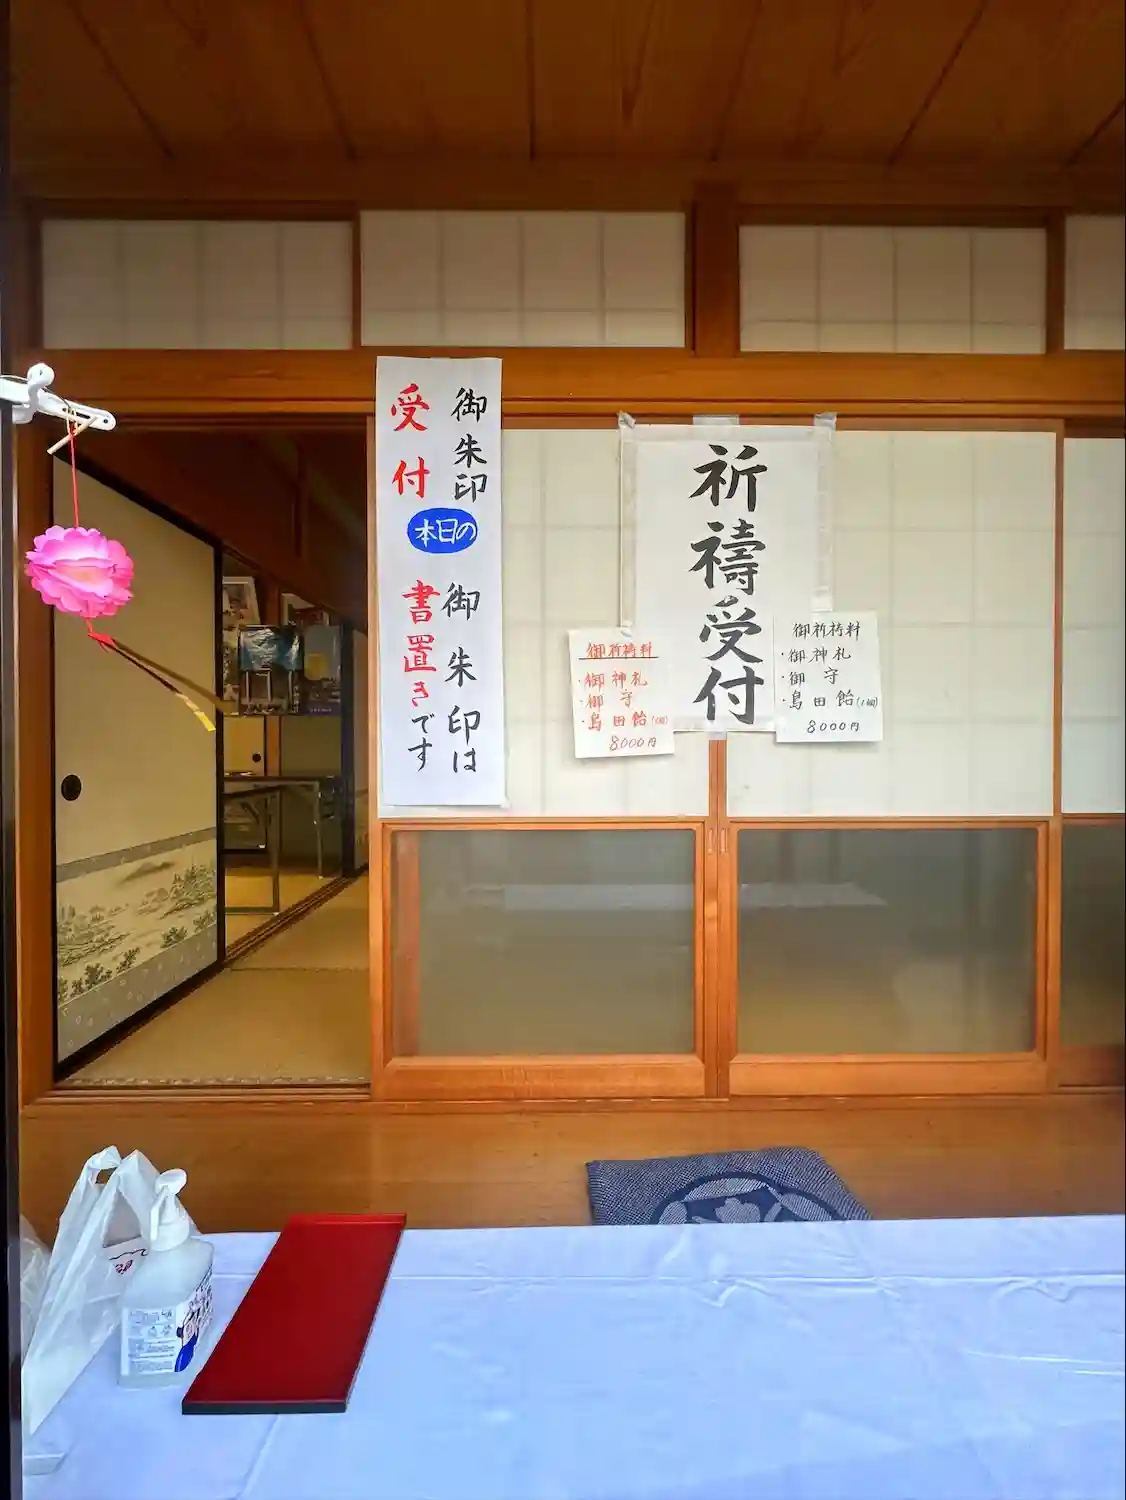 御朱印
受付
本日の
御朱印は
書置きです
祈禱受付
御祈祷料
・御神札
・御守
・島田飴(1個)
8000円
御祈祷料
・御神札
・御守
・島田飴(1個)
8000円